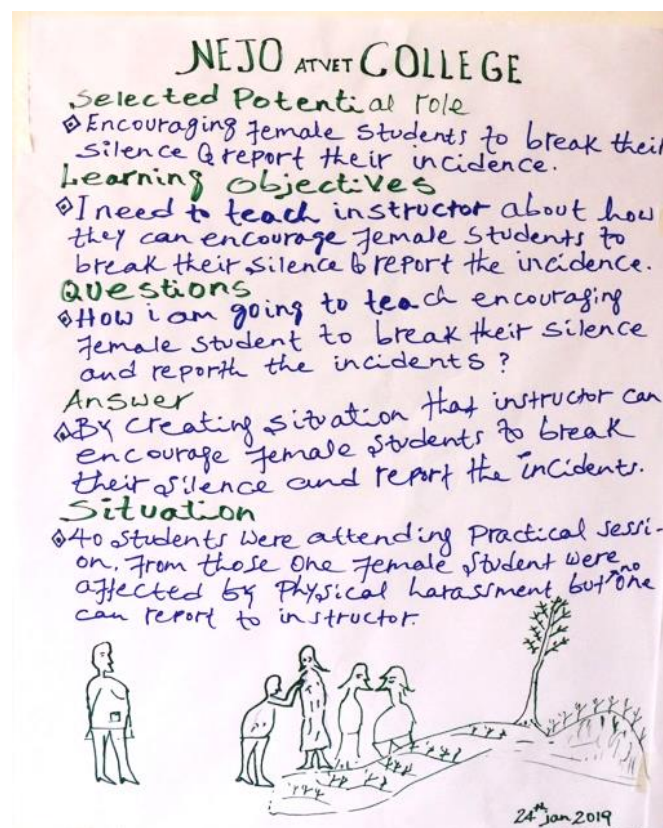 NEJO ATVET COLLEGE
Selected Potential role
Encouraging female students to break their
silence & report their incidence.
Learning objectives
I need to teach instructor about how
they can encourage female students to
break their silence & report the incidence.
Questions
How i am going to teach encouraging
female student to break their silence
and reporth the incidents ?
Answer
By creating situation that instructor can
encourage female students to break
their silence and report the incidents.
Situation
40 students were attending Practical sessi-
on. From those one female student were
affected by Physical harassment but no one
can report to instructor.
24th Jan 2019